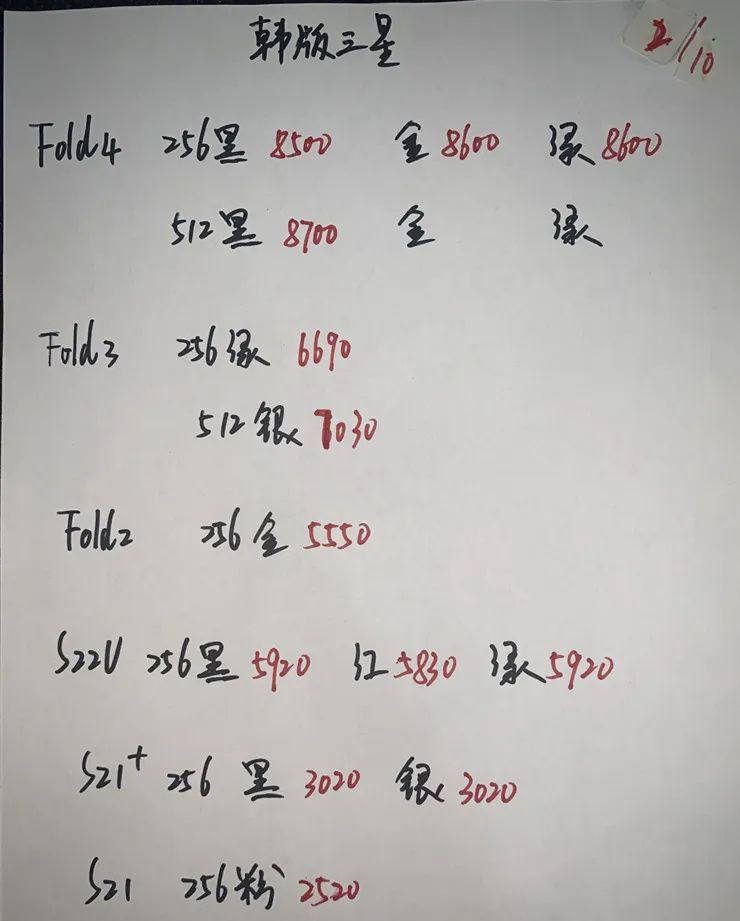 韩版三星
2/10
Fold4 256黑 8500 金 8600 绿 8600
512黑 8700 金 绿
Fold3 256绿 6690
512银 7030
Fold2 256金 5550
S22U 256黑 5920 红 5830 绿 5920
S21+ 256 黑 3020 银 3020
S21 256粉 2520